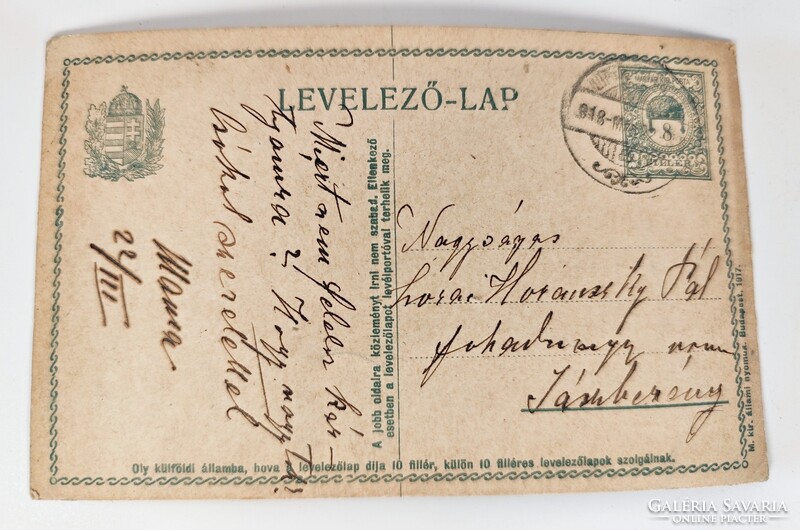 LEVELEZŐ-LAP
918-M
8
Miért nem felelsz kár-
tyámra? Hogy vagytok?
Csókol szeretettel
Mama
22/III
A jobb oldalra közleményt irni nem szabad. Ellenkező
esetben a levelezőlapot levélportóval terhelik meg.
Nagyságos
Horánszky Pál
főhadnagy
Jászberény
Oly külföldi államba, hova a levelezőlap dija 10 fillér, külön 10 filléres levelezőlapok szolgálnak.
M. kir. állami nyomda. Budapest. 1917.
GALÉRIA SAVARIA
ONLINE PIACTÉR